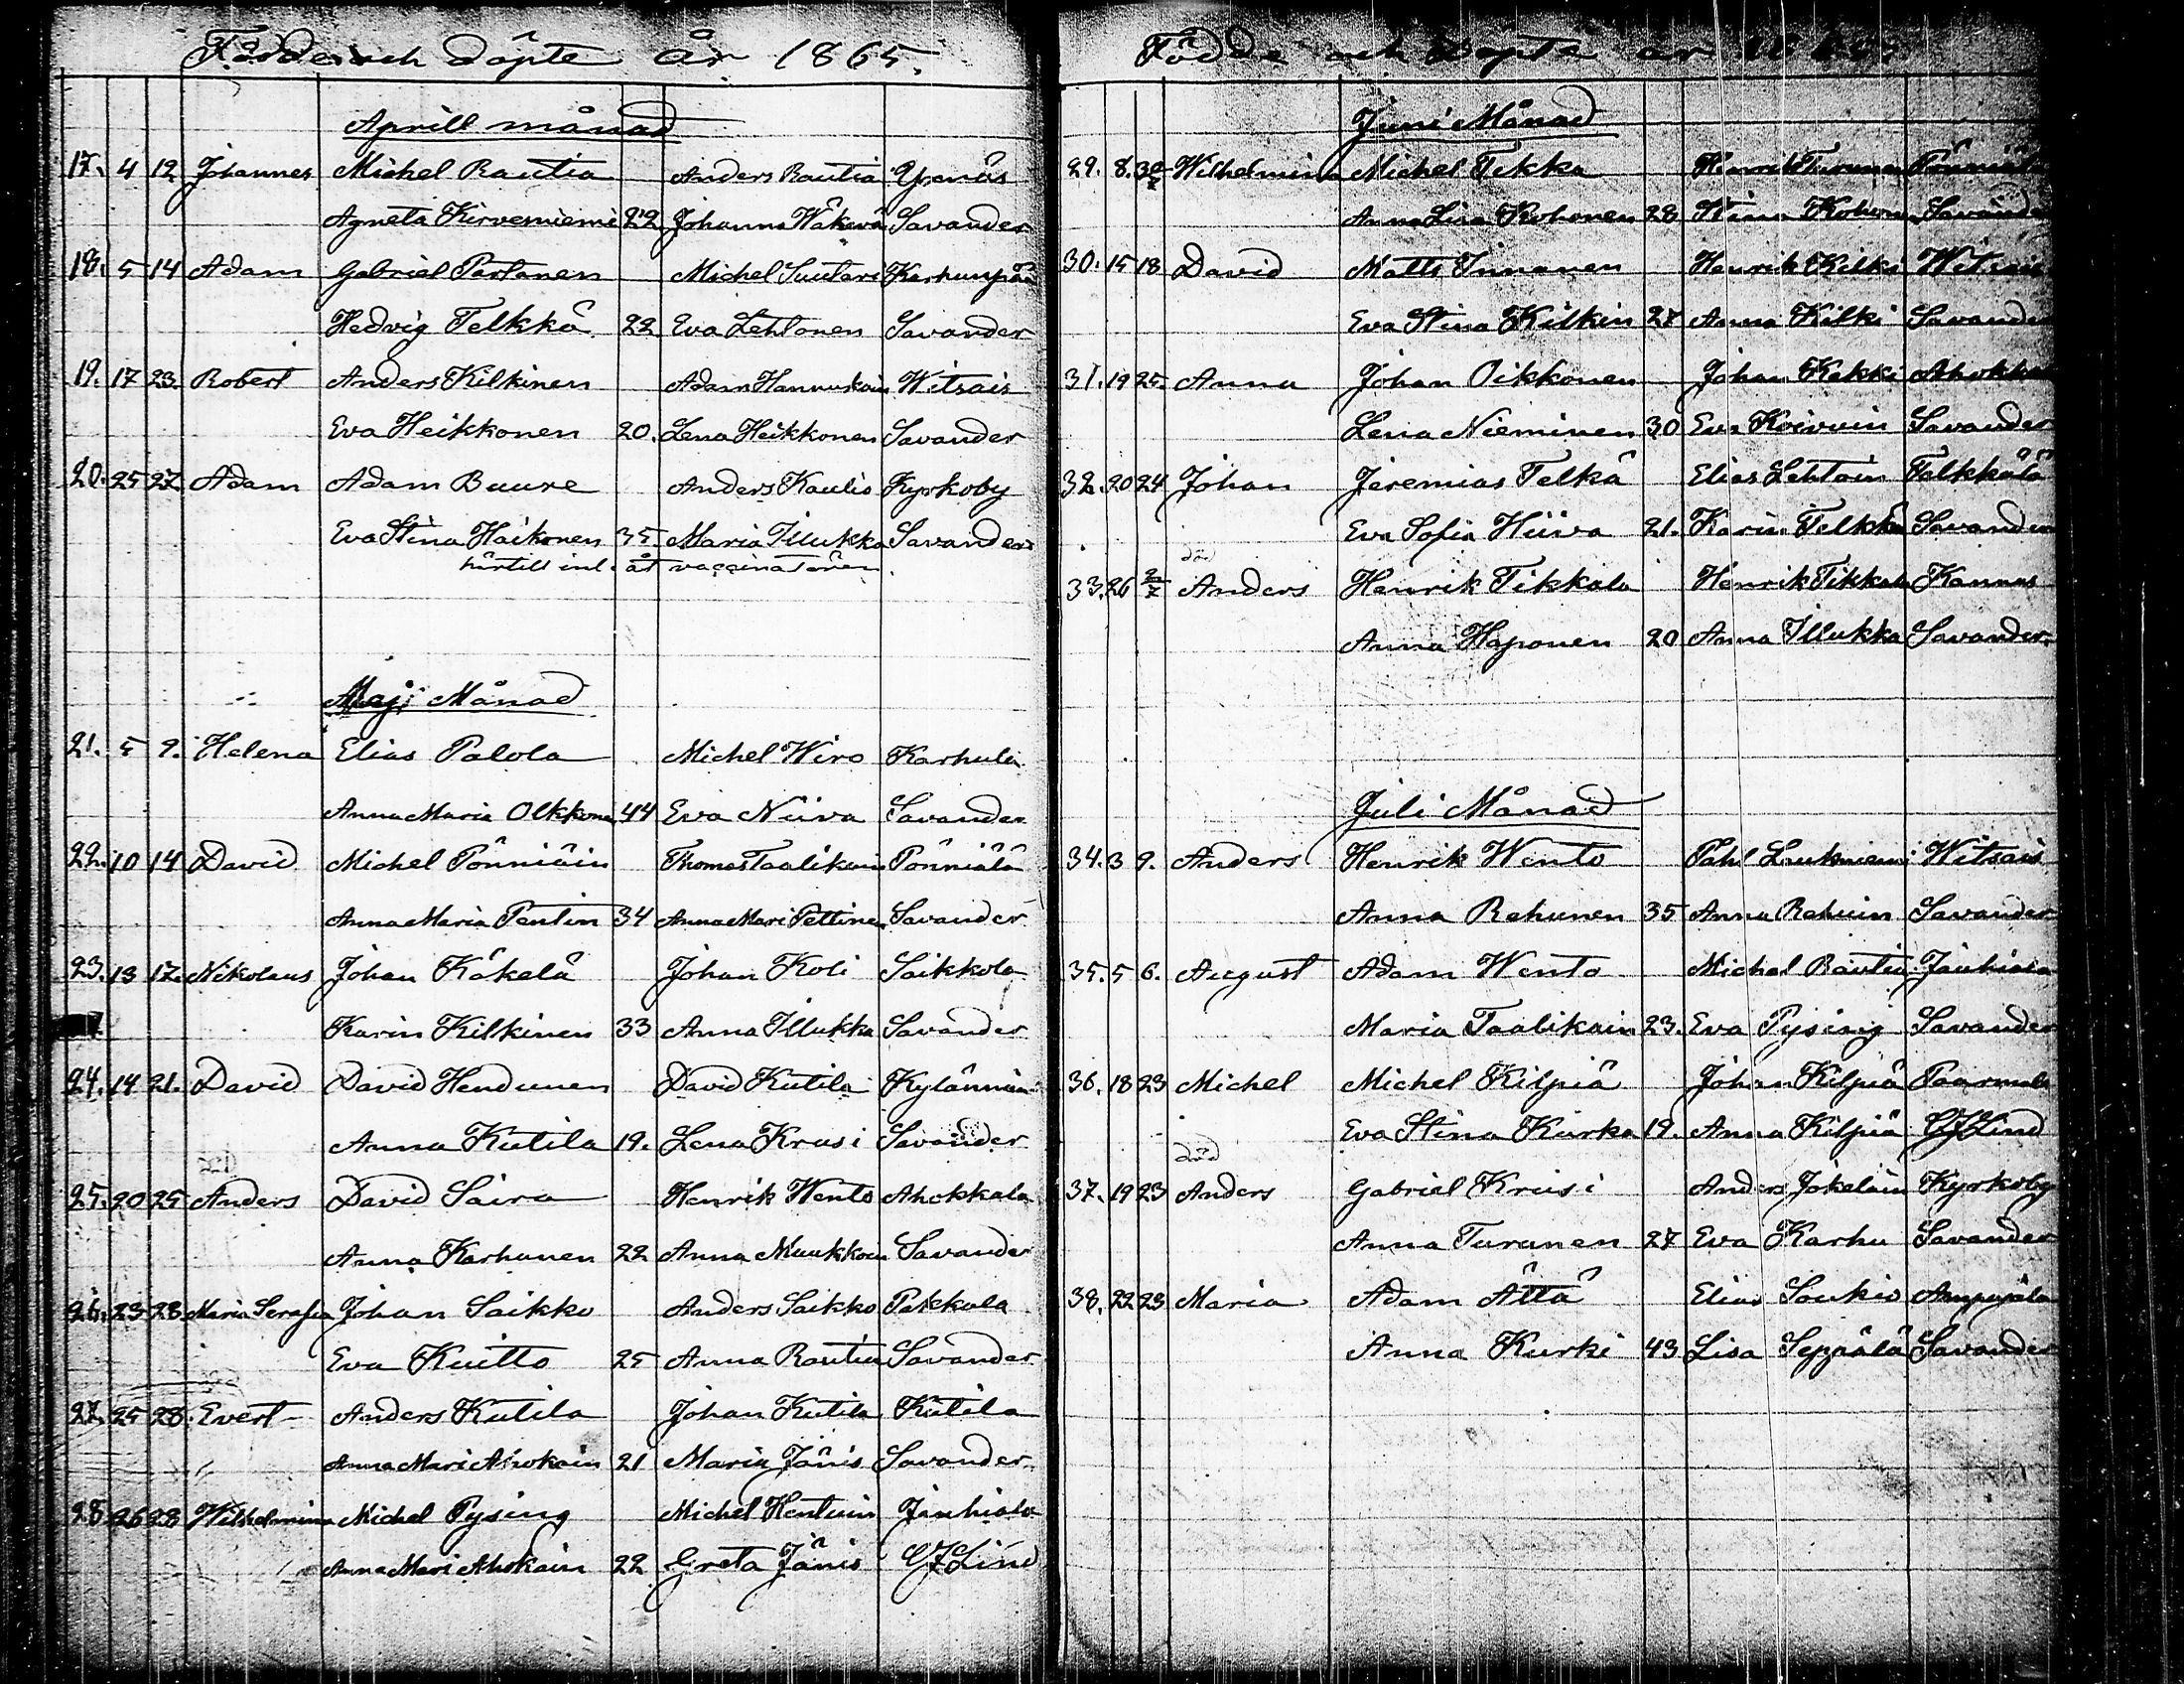 Födde och döpte år 1865.
Aprill månad
17. 4 12 Johannes Michel Rautia Anders Rautia
Agneta Kirvesniemi 22 Johanna Wäkevä Savander
18. 5 14 Adam Gabriel Partanen Michel Suutari Karhunpää
Hedvig Telkkä 22 Eva Lehtonen Savander
19. 17 23 Robert Anders Kilkinen Adam Hannukain Witsais
Eva Heikkonen 20. Lena Heikkonen Savander
20. 25 27 Adam Adam Buure Anders Kaulio Kyrkoby
Eva Stina Haikonen 35 Maria Illukka Savander
härtill inl. åt vaccinatören.
Maji Månad
21. 5 9. Helena Elias Palola Michel Wiro Karhula
Anna Maria Olkkone 44 Eva Niiva Savander
22. 10 14 David Michel Pönniäin Thomas Taalikain Pönniälä
Anna Maria Pentin 34 Anna Mari Pettinen Savander
23. 13 17. Nikolaus Johan Käkelä Johan Koli Saikkola
Karin Kilkinen 33 Anna Illukka Savander
24. 14 21. David David Hendunen David Kutila Kylänniemi
Anna Kutila 19. Lena Krusi Savander
död
25. 20 25 Anders David Saira Henrik Wento Ahokkala
Anna Karhunen 22 Anna Muukkoin Savander
26. 23 28 Maria Serafia Johan Saikko Anders Saikko Pakkola
Eva Kuitto 25 Anna Rautia Savander
27. 25 28. Evert Anders Kutila Johan Kutila Kutila
Anna Mari Ahokain 21 Maria Jänis Savander
28 26 28 Wilhelmina Michel Pysing Michel Hentuin Jauhiala
Anna Mari Ahokain 22 Greta Jänis CJLind
Födde och döpte år
Juni Månad
29. 8. 30 Wilhelmina Michel Tekka Henrik Turunen Pönniälä
Anna Lisa Kohonen 28 Stina Kohon Savander
30. 15 18 David Matts Innanen Henrik Kilki Witsais
Eva Stina Kilkin 27 Anna Kilki Savander
31. 19 25. Anna Johan Oikkonen Johan Kekki Ahokkala
Lena Nieminen 30 Eva Koivuin Savander
32. 20 24 Johan Jeremias Telkä Elias Lehtoin Telkkälä
Eva Sofia Hiiva 21. Karin Telkkä Savander
död
33. 26 2/7 Anders Henrik Tikkala Henrik Tikkala Kannus
Anna Haponen 20 Anna Illukka Savander
Juli Månad
34. 3 9. Anders Henrik Wento Pahl Laukniemi Witsais
Anna Rehunen 35 Anna Rehuin Savander
35. 5 6. August Adam Wento Michel Rautia Jauhiala
Maria Taalikain 23. Eva Pysing Savander
36. 18 23 Michel Michel Kilpiä Johan Kilpiä Paarmala
Eva Stina Kurka 19. Anna Kilpiä CJLind
död
37. 19 23 Anders Gabriel Krusi Anders Jokelain Kyrkoby
Anna Turunen 27 Eva Karhu Savander
38. 22 23 Maria Adam Ättä Elias Soukio Ampujala
Anna Kurki 43 Lisa Seppälä Savander